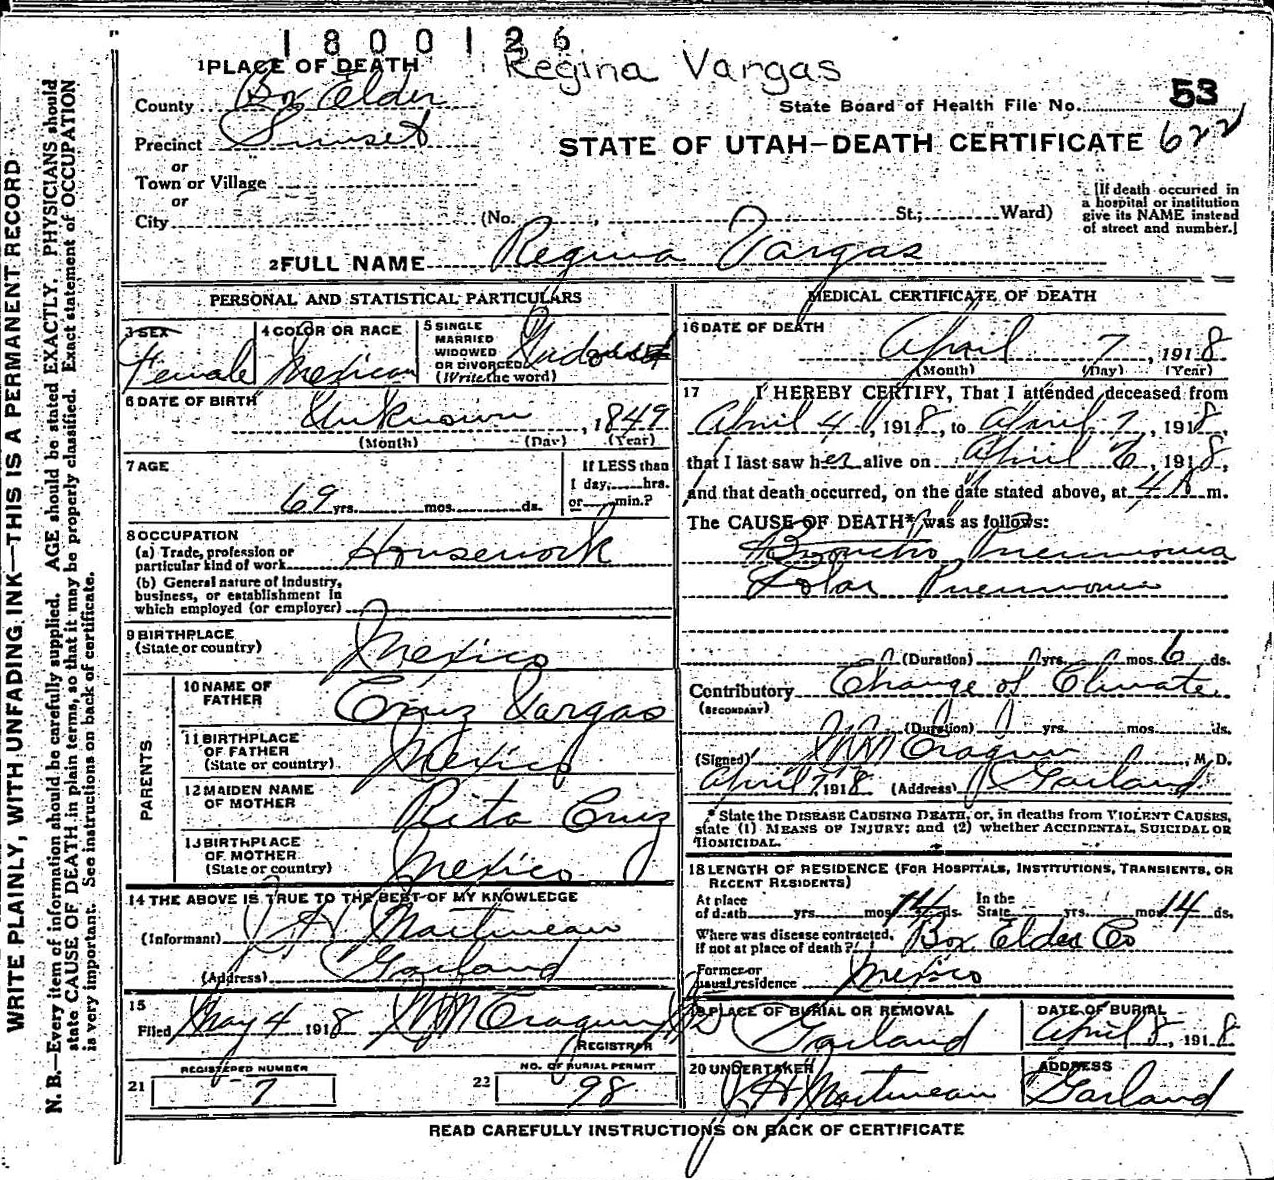 1800126
Regina Vargas
1 PLACE OF DEATH
County Box Elder
State Board of Health File No. 53
Precinct Sunset
STATE OF UTAH—DEATH CERTIFICATE 622
or
Town or Village
or
City (No. St.; Ward)
[If death occurred in a hospital or institution give its NAME instead of street and number.]
2 FULL NAME Regina Vargas
PERSONAL AND STATISTICAL PARTICULARS
3 SEX Female
4 COLOR OR RACE Mexican
5 SINGLE MARRIED WIDOWED OR DIVORCED (Write the word) Widowed
6 DATE OF BIRTH Unknown, 1849
(Month) (Day) (Year)
7 AGE 69 yrs. mos. ds.
If LESS than 1 day, hrs. or min.?
8 OCCUPATION
(a) Trade, profession or particular kind of work Housework
(b) General nature of Industry, business, or establishment in which employed (or employer)
9 BIRTHPLACE (State or country) Mexico
PARENTS
10 NAME OF FATHER Cruz Vargas
11 BIRTHPLACE OF FATHER (State or country) Mexico
12 MAIDEN NAME OF MOTHER Rita Cruz
13 BIRTHPLACE OF MOTHER (State or country) Mexico
14 THE ABOVE IS TRUE TO THE BEST OF MY KNOWLEDGE
(Informant) J H Martineau
(Address) Garland
15 Filed May 4 1918 Cragun REGISTRAR
21 REGISTERED NUMBER 7
22 NO. OF BURIAL PERMIT 98
MEDICAL CERTIFICATE OF DEATH
16 DATE OF DEATH April 7, 1918
(Month) (Day) (Year)
17 I HEREBY CERTIFY, That I attended deceased from
April 4, 1918, to April 7, 1918,
that I last saw her alive on April 6, 1918,
and that death occurred, on the date stated above, at 4 A m.
The CAUSE OF DEATH* was as follows:
Broncho Pneumonia
Lobar Pneumonia
(Duration) yrs. mos. 6 ds.
Contributory (SECONDARY) Change of Climate
(Duration) yrs. mos. ds.
(Signed) Cragun, M. D.
April 7, 1918 (Address) Garland
* State the DISEASE CAUSING DEATH, or, in deaths from VIOLENT CAUSES, state (1) MEANS OF INJURY; and (2) whether ACCIDENTAL, SUICIDAL OR HOMICIDAL.
18 LENGTH OF RESIDENCE (FOR HOSPITALS, INSTITUTIONS, TRANSIENTS, OR RECENT RESIDENTS)
At place of death yrs. mos. 14 ds. In the State yrs. mos. 14 ds.
Where was disease contracted, if not at place of death? Box Elder Co
Former or usual residence Mexico
19 PLACE OF BURIAL OR REMOVAL Garland
DATE OF BURIAL April 8, 1918
20 UNDERTAKER J H Martineau
ADDRESS Garland
READ CAREFULLY INSTRUCTIONS ON BACK OF CERTIFICATE
WRITE PLAINLY, WITH UNFADING INK—THIS IS A PERMANENT RECORD
N. B.—Every item of information should be carefully supplied. AGE should be stated EXACTLY. PHYSICIANS should
state CAUSE OF DEATH in plain terms, so that it may be properly classified. Exact statement of OCCUPATION
is very important. See instructions on back of certificate.